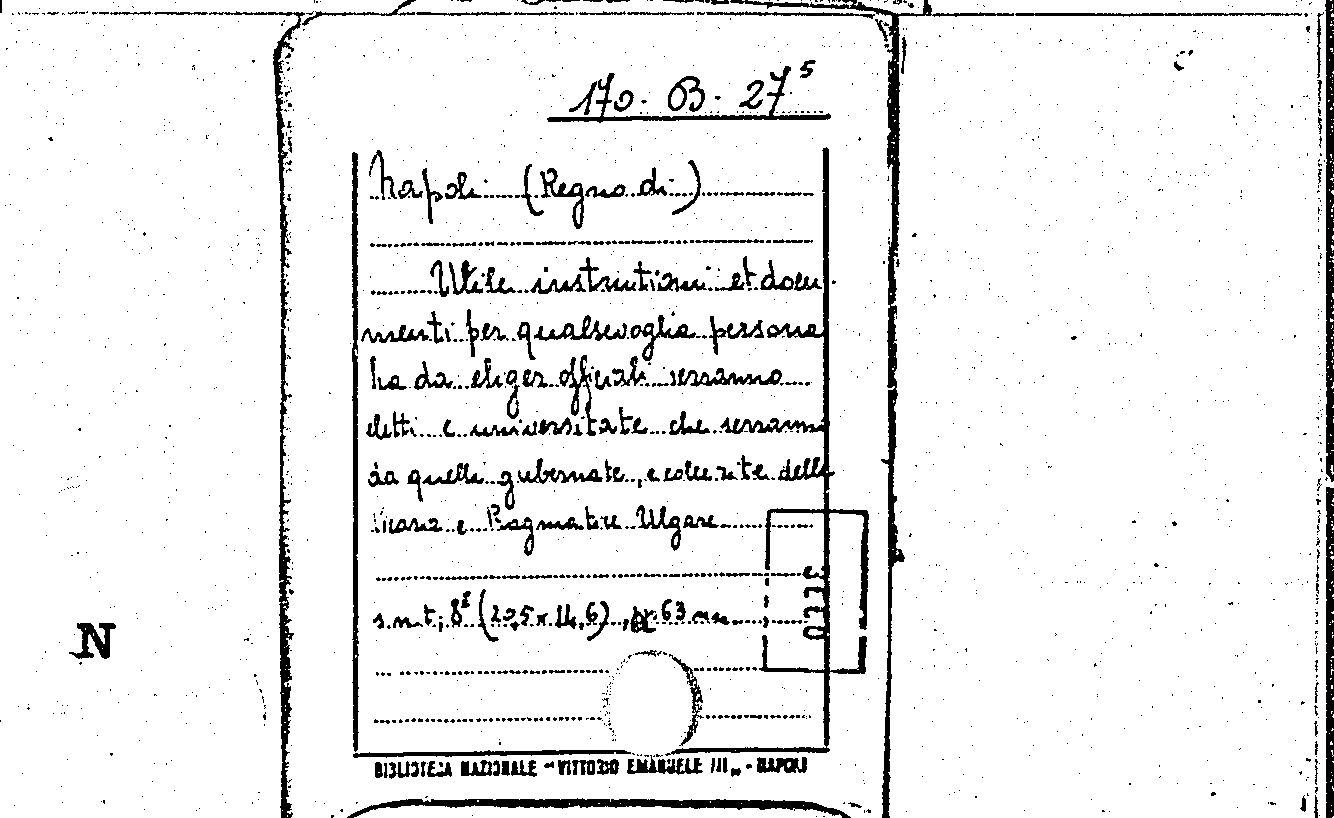 170. B. 27⁵
Napoli (Regno di)
Utile instrutioni et docu-
menti per qualsevoglia persona
ha da eliger officiali serranno
eletti e universitate che serranno
da quelle gubernate, e delle
e Pragmatice Ulgare
s.n.t; 8º (20,5 x 14,6) , 63
0778
N
BIBLIOTECA NAZIONALE "VITTORIO EMANUELE III„ - NAPOLI